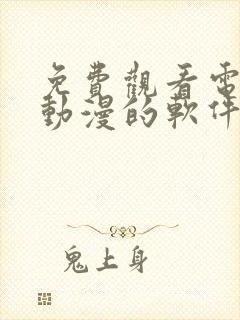 免費觀看電
動漫的軟件
鬼上身